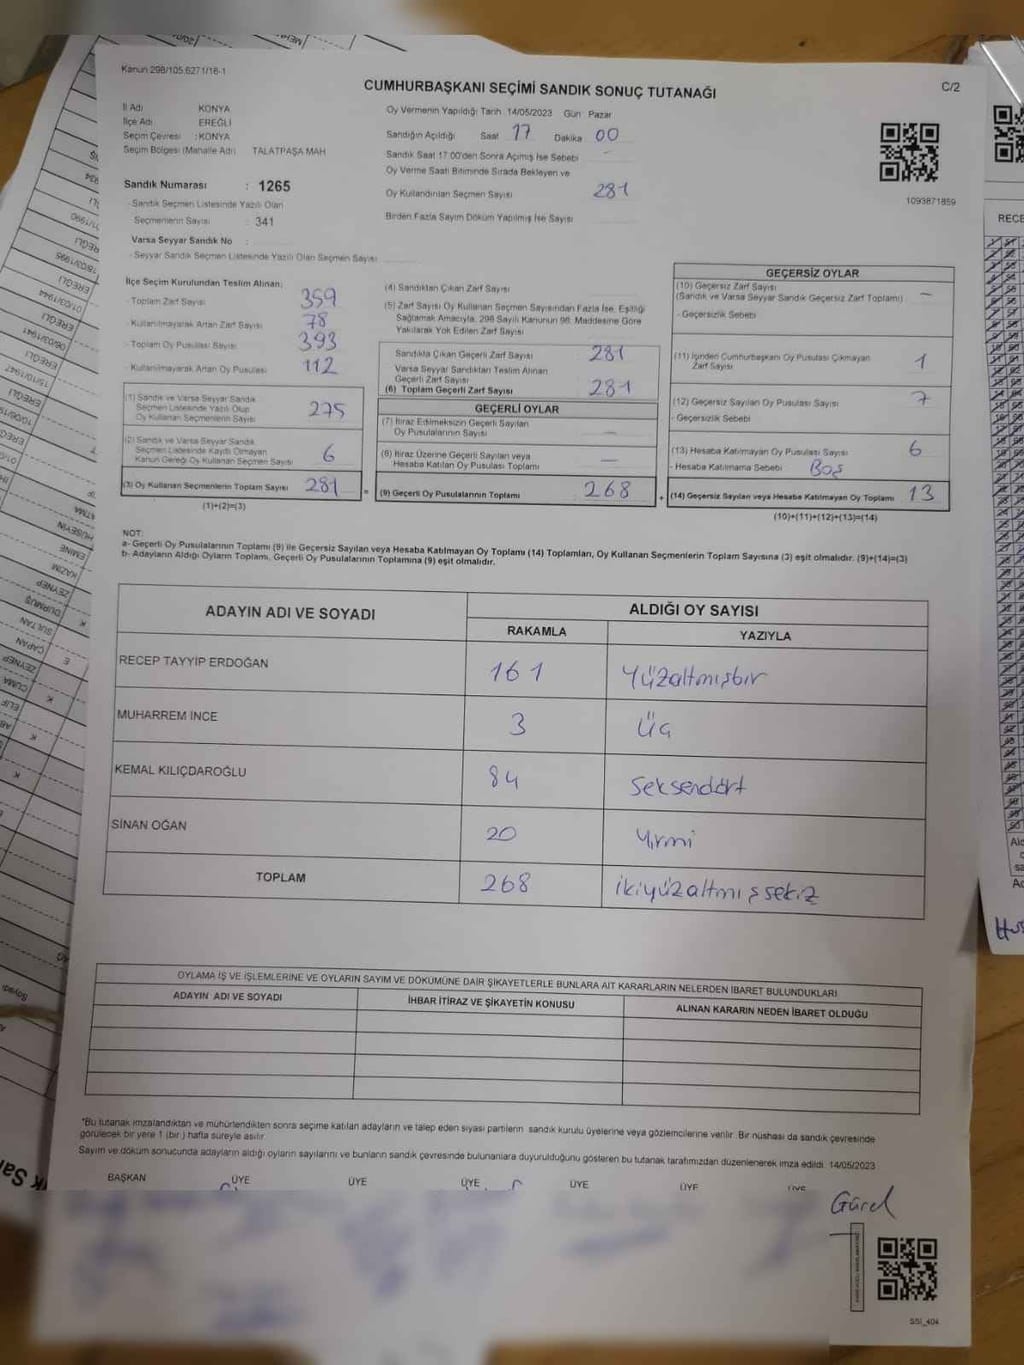 Kanun 298/105.6271/16-1
C/2
CUMHURBAŞKANI SEÇİMİ SANDIK SONUÇ TUTANAĞI
İl Adı KONYA
İlçe Adı EREĞLİ
Seçim Çevresi : KONYA
Seçim Bölgesi (Mahalle Adı) TALATPAŞA MAH
Sandık Numarası : 1265
- Sandık Seçmen Listesinde Yazılı Olan
Seçmenlerin Sayısı : 341
Varsa Seyyar Sandık No :
- Seyyar Sandık Seçmen Listesinde Yazılı Olan Seçmen Sayısı
Oy Vermenin Yapıldığı Tarih 14/05/2023 Gün Pazar
Sandığın Açıldığı Saat 17 Dakika 00
Sandık Saat 17.00'den Sonra Açılmış İse Sebebi -
Oy Verme Saati Bitiminde Sırada Bekleyen ve
Oy Kullandırılan Seçmen Sayısı 281
Birden Fazla Sayım Döküm Yapılmış İse Sayısı
1093871859
İlçe Seçim Kurulundan Teslim Alınan;
- Toplam Zarf Sayısı 359
- Kullanılmayarak Artan Zarf Sayısı 78
- Toplam Oy Pusulası Sayısı 393
- Kullanılmayarak Artan Oy Pusulası 112
(1) Sandık ve Varsa Seyyar Sandık
Seçmen Listesinde Yazılı Olup
Oy Kullanan Seçmenlerin Sayısı 275
(2) Sandık ve Varsa Seyyar Sandık
Seçmen Listesinde Kaydı Olmayan
Kanun Gereği Oy Kullanan Seçmen Sayısı 6
(3) Oy Kullanan Seçmenlerin Toplam Sayısı 281
(1)+(2)=(3)
(4) Sandıktan Çıkan Zarf Sayısı
(5) Zarf Sayısı Oy Kullanan Seçmen Sayısından Fazla İse, Eşitliği
Sağlamak Amacıyla, 298 Sayılı Kanunun 98. Maddesine Göre
Yakılarak Yok Edilen Zarf Sayısı
Sandıkta Çıkan Geçerli Zarf Sayısı 281
Varsa Seyyar Sandıktan Teslim Alınan
Geçerli Zarf Sayısı
(6) Toplam Geçerli Zarf Sayısı 281
GEÇERLİ OYLAR
(7) İtiraz Edilmeksizin Geçerli Sayılan
Oy Pusulalarının Sayısı —
(8) İtiraz Üzerine Geçerli Sayılan veya
Hesaba Katılan Oy Pusulası Toplamı —
= (9) Geçerli Oy Pusulalarının Toplamı 268
GEÇERSİZ OYLAR
(10) Geçersiz Zarf Sayısı
(Sandık ve Varsa Seyyar Sandık Geçersiz Zarf Toplamı) —
- Geçersizlik Sebebi
(11) İçinden Cumhurbaşkanı Oy Pusulası Çıkmayan
Zarf Sayısı 1
(12) Geçersiz Sayılan Oy Pusulası Sayısı 7
- Geçersizlik Sebebi
(13) Hesaba Katılmayan Oy Pusulası Sayısı 6
- Hesaba Katılmama Sebebi Boş
+ (14) Geçersiz Sayılan veya Hesaba Katılmayan Oy Toplamı 13
(10)+(11)+(12)+(13)=(14)
NOT:
a- Geçerli Oy Pusulalarının Toplamı (9) ile Geçersiz Sayılan veya Hesaba Katılmayan Oy Toplamı (14) Toplamları, Oy Kullanan Seçmenlerin Toplam Sayısına (3) eşit olmalıdır. (9)+(14)=(3)
b- Adayların Aldığı Oyların Toplamı, Geçerli Oy Pusulalarının Toplamına (9) eşit olmalıdır.
ADAYIN ADI VE SOYADI ALDIĞI OY SAYISI
RAKAMLA YAZIYLA
RECEP TAYYİP ERDOĞAN 161 Yüzaltmışbir
MUHARREM İNCE 3 Üç
KEMAL KILIÇDAROĞLU 84 Seksendört
SİNAN OĞAN 20 Yirmi
TOPLAM 268 ikiyüzaltmışsekiz
OYLAMA İŞ VE İŞLEMLERİNE VE OYLARIN SAYIM VE DÖKÜMÜNE DAİR ŞİKAYETLERLE BUNLARA AİT KARARLARIN NELERDEN İBARET BULUNDUKLARI
ADAYIN ADI VE SOYADI İHBAR İTİRAZ VE ŞİKAYETİN KONUSU ALINAN KARARIN NEDEN İBARET OLDUĞU
*Bu tutanak imzalandıktan ve mühürlendikten sonra seçime katılan adayların ve talep eden siyasi partilerin sandık kurulu üyelerine veya gözlemcilerine verilir. Bir nüshası da sandık çevresinde
görülecek bir yere 1 (bir) hafta süreyle asılır.
Sayım ve döküm sonucunda adayların aldığı oyların sayılarını ve bunların sandık çevresinde bulunanlara duyurulduğunu gösteren bu tutanak tarafımızdan düzenlenerek imza edildi. 14/05/2023
BAŞKAN ÜYE ÜYE ÜYE ÜYE ÜYE ÜYE
Gürel
SSI_404